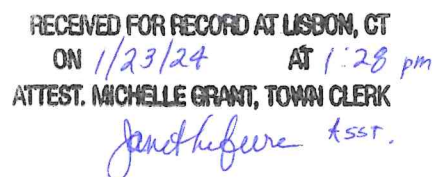 RECEIVED FOR RECORD AT LISBON, CT
ON 1/23/24 AT 1:28 pm
ATTEST. MICHELLE GRANT, TOWN CLERK
Janet Lefevre Asst.